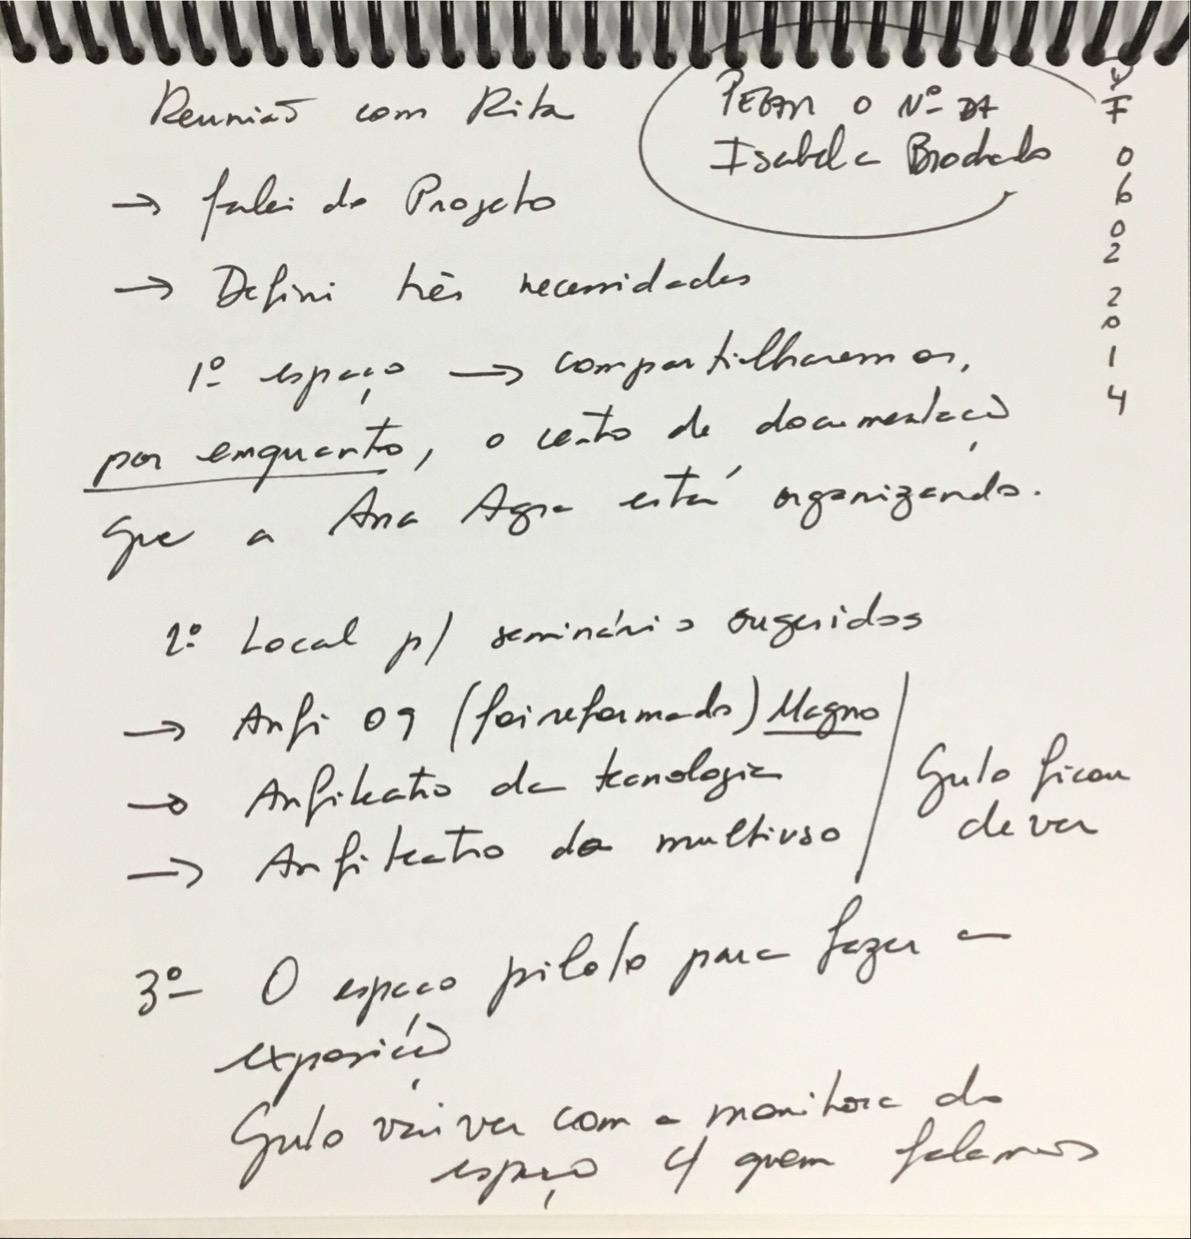 Reunião com Rita
PEGAR O Nº DA
Isabela Brochado
→ falei do Projeto
→ Defini três necessidades
1º espaço → compartilharemos,
por enquanto, o cento de documentação
que a Ana Agra está organizando.
2º Local p/ seminários sugeridos
→ Anfi 09 (foi reformado) Magno
→ Anfiteatro da tecnologia
→ Anfiteatro do multiuso
Gulo ficou
de ver
3º O espaço piloto para fazer a
exposição
Gulo vai ver com a monitora do
espaço c/ quem falamos
F
0
6
0
2
2
0
1
4